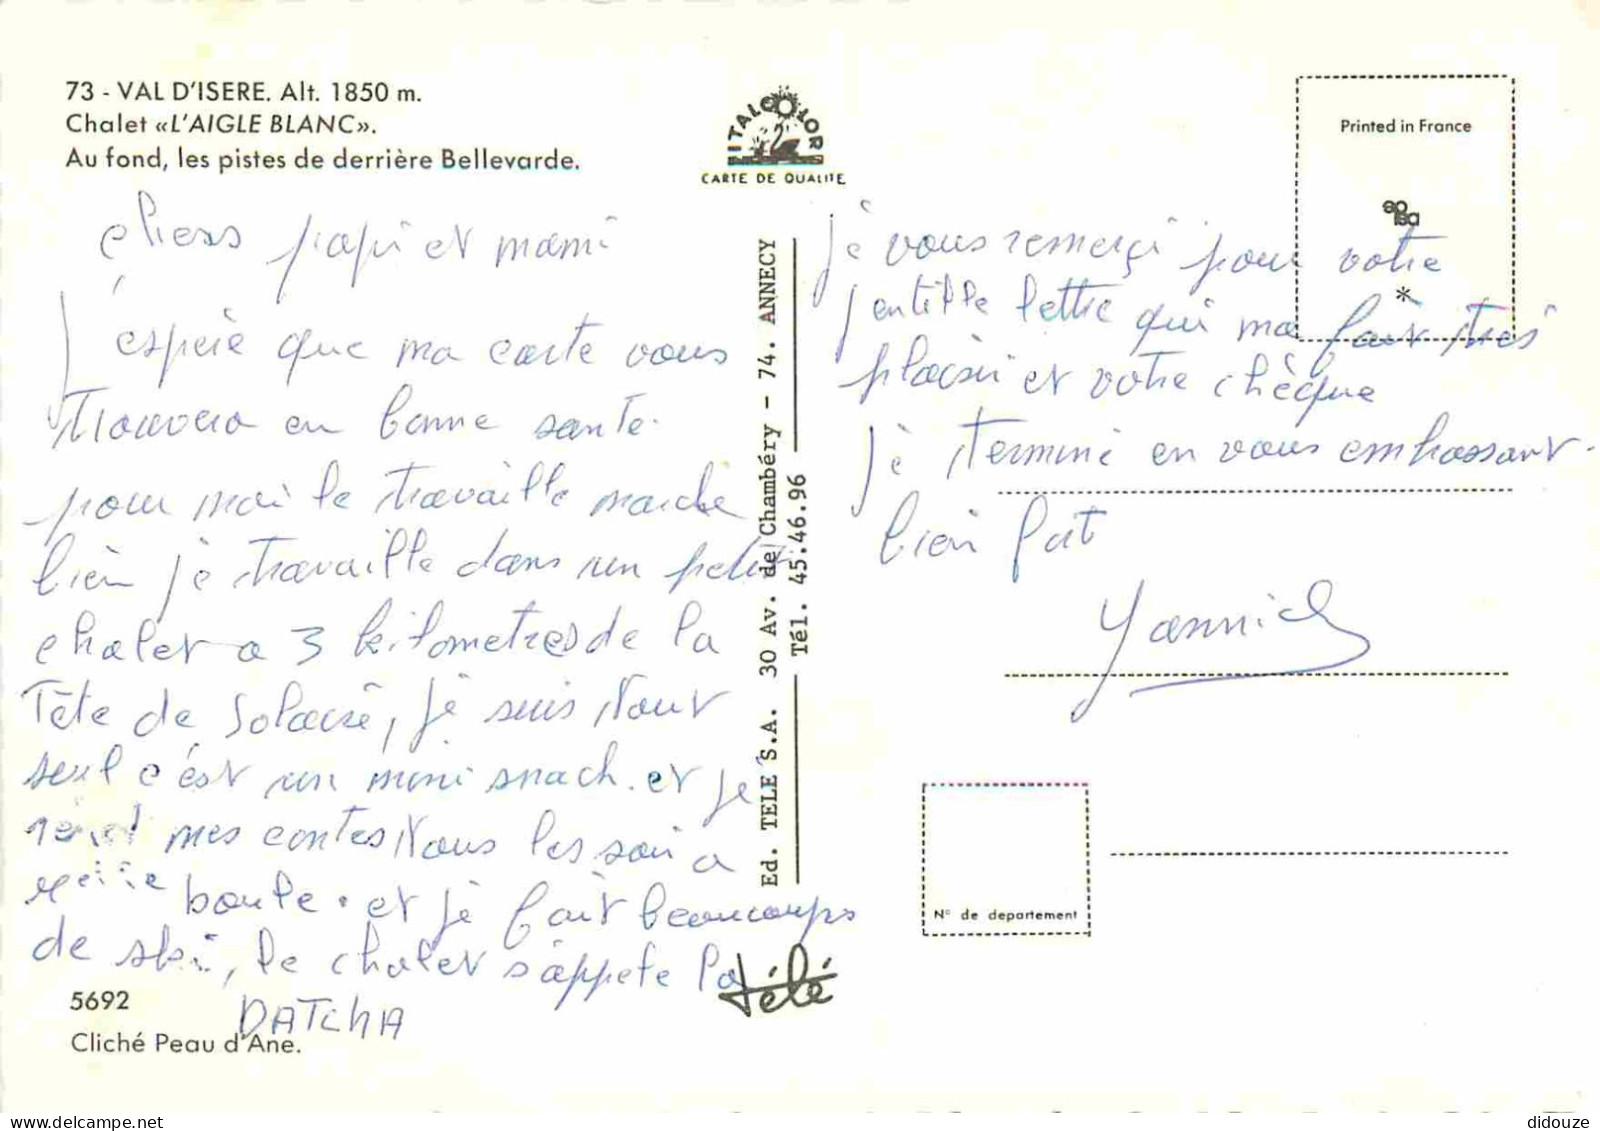 73 - VAL D'ISERE. Alt. 1850 m.
Chalet «L'AIGLE BLANC».
Au fond, les pistes de derrière Bellevarde.
chers papi et mami
J'espère que ma carte vous
trouvera en bonne sante.
pour moi le travaille marche
bien je travaille dans un petit
chalet a 3 kilometres de la
Tête de Solaise, je suis tout
seul c'est un mini snack. et je
rend mes contes tous les soir a
boule. et je fait beaucoups
de ski, le chalet s'appele la
DATCHA
5692
Cliché Peau d'Ane.
ITALCOLOR
CARTE DE QUALITE
Ed. TELE S.A. 30 Av. de Chambéry - 74. ANNECY
Tél. 45.46.96
télé
Printed in France
*
je vous remerçi pour votre
jentille lettre qui ma fait très
plaisir et votre chèque
je termine en vous embrassant.
bien fort
Yannick
N° de departement
delcampe.net
didouze